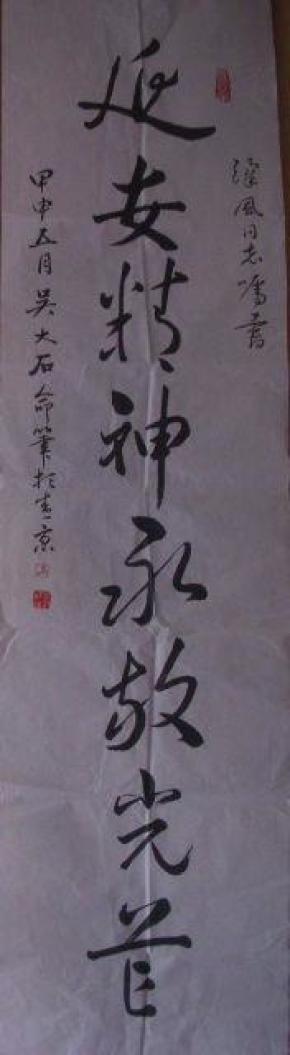 风同志嘱书
延安精神永放光芒
甲申五月吴大石命笔于京